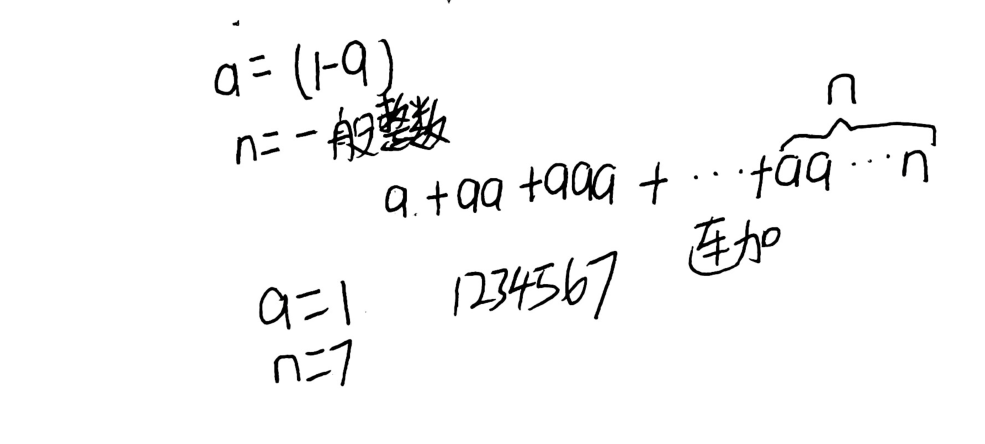 a = (1-9)
n = 一般整数
n
a + aa + aaa + ... + aa...n
连加
a = 1 1234567
n = 7